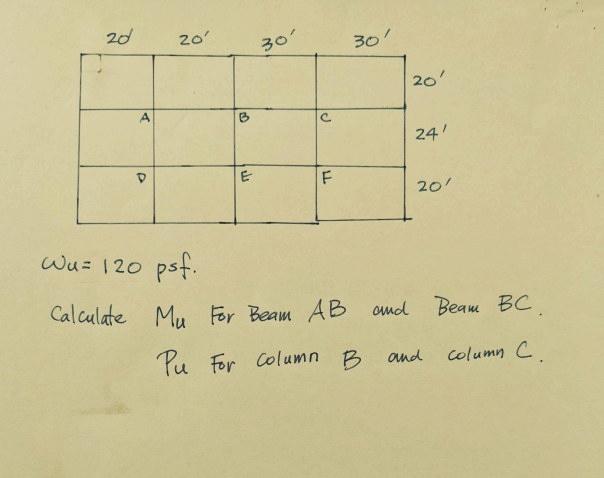 20' 20' 30' 30'
20'
A B C
24'
D E F
20'
Wu = 120 psf.
Calculate Mu For Beam AB and Beam BC.
Pu For column B and column C.